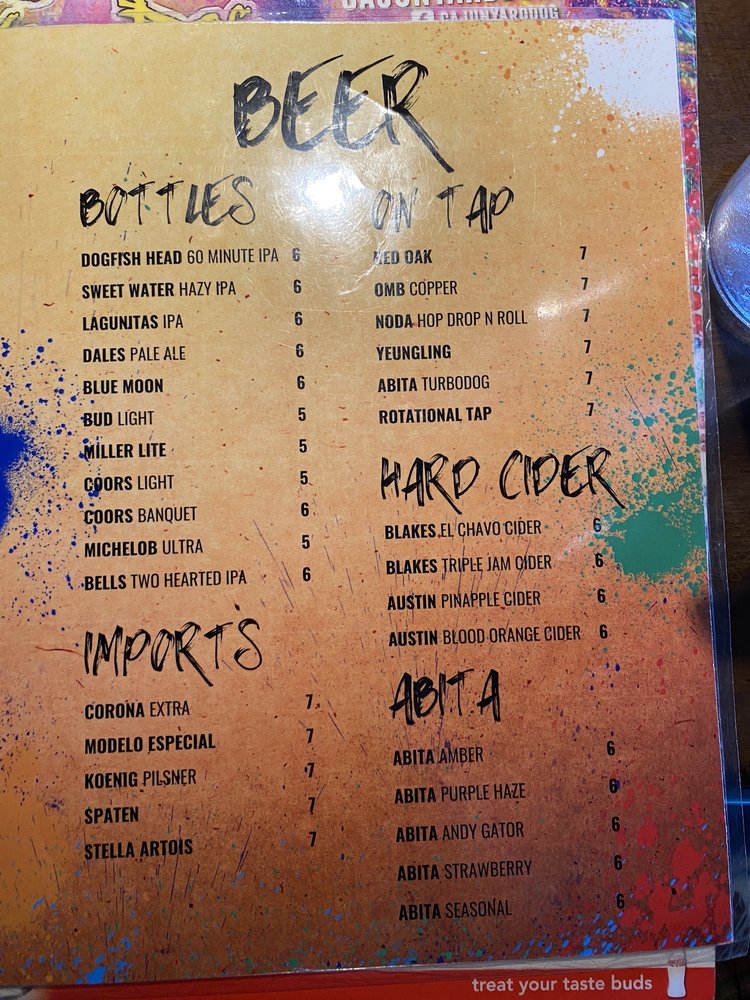 CAJUNYARDDOG
BEER
BOTTLES
DOGFISH HEAD 60 MINUTE IPA 6
SWEET WATER HAZY IPA 6
LAGUNITAS IPA 6
DALES PALE ALE 6
BLUE MOON 6
BUD LIGHT 5
MILLER LITE 5
COORS LIGHT 5
COORS BANQUET 6
MICHELOB ULTRA 5
BELLS TWO HEARTED IPA 6
IMPORTS
CORONA EXTRA 7
MODELO ESPECIAL 7
KOENIG PILSNER 7
SPATEN 7
STELLA ARTOIS 7
ON TAP
RED OAK 7
OMB COPPER 7
NODA HOP DROP N ROLL 7
YEUNGLING 7
ABITA TURBODOG 7
ROTATIONAL TAP 7
HARD CIDER
BLAKES EL CHAVO CIDER 6
BLAKES TRIPLE JAM CIDER 6
AUSTIN PINAPPLE CIDER 6
AUSTIN BLOOD ORANGE CIDER 6
ABITA
ABITA AMBER 6
ABITA PURPLE HAZE 6
ABITA ANDY GATOR 6
ABITA STRAWBERRY 6
ABITA SEASONAL 6
treat your taste buds